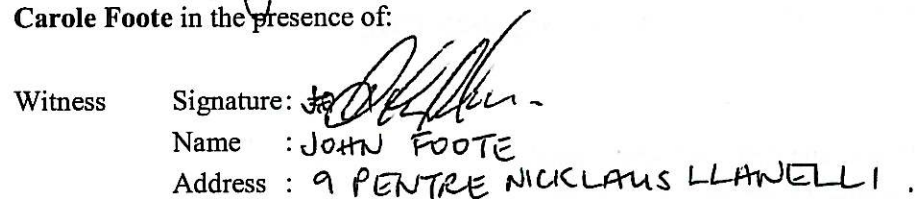 Carole Foote in the presence of:
Witness Signature:
Name : JOHN FOOTE
Address : 9 PENTRE NICKLAUS LLANELLI .